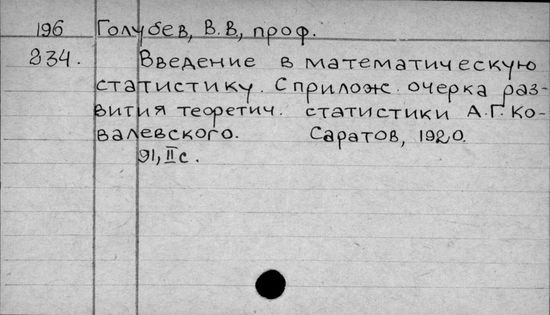 196 Голубев, В.В, проф.
234. Введение в математическую
статистику. С прилож. очерка раз-
вития теоретич. статистики А.Г. Ко-
валевского. Саратов, 1920.
91, II с.